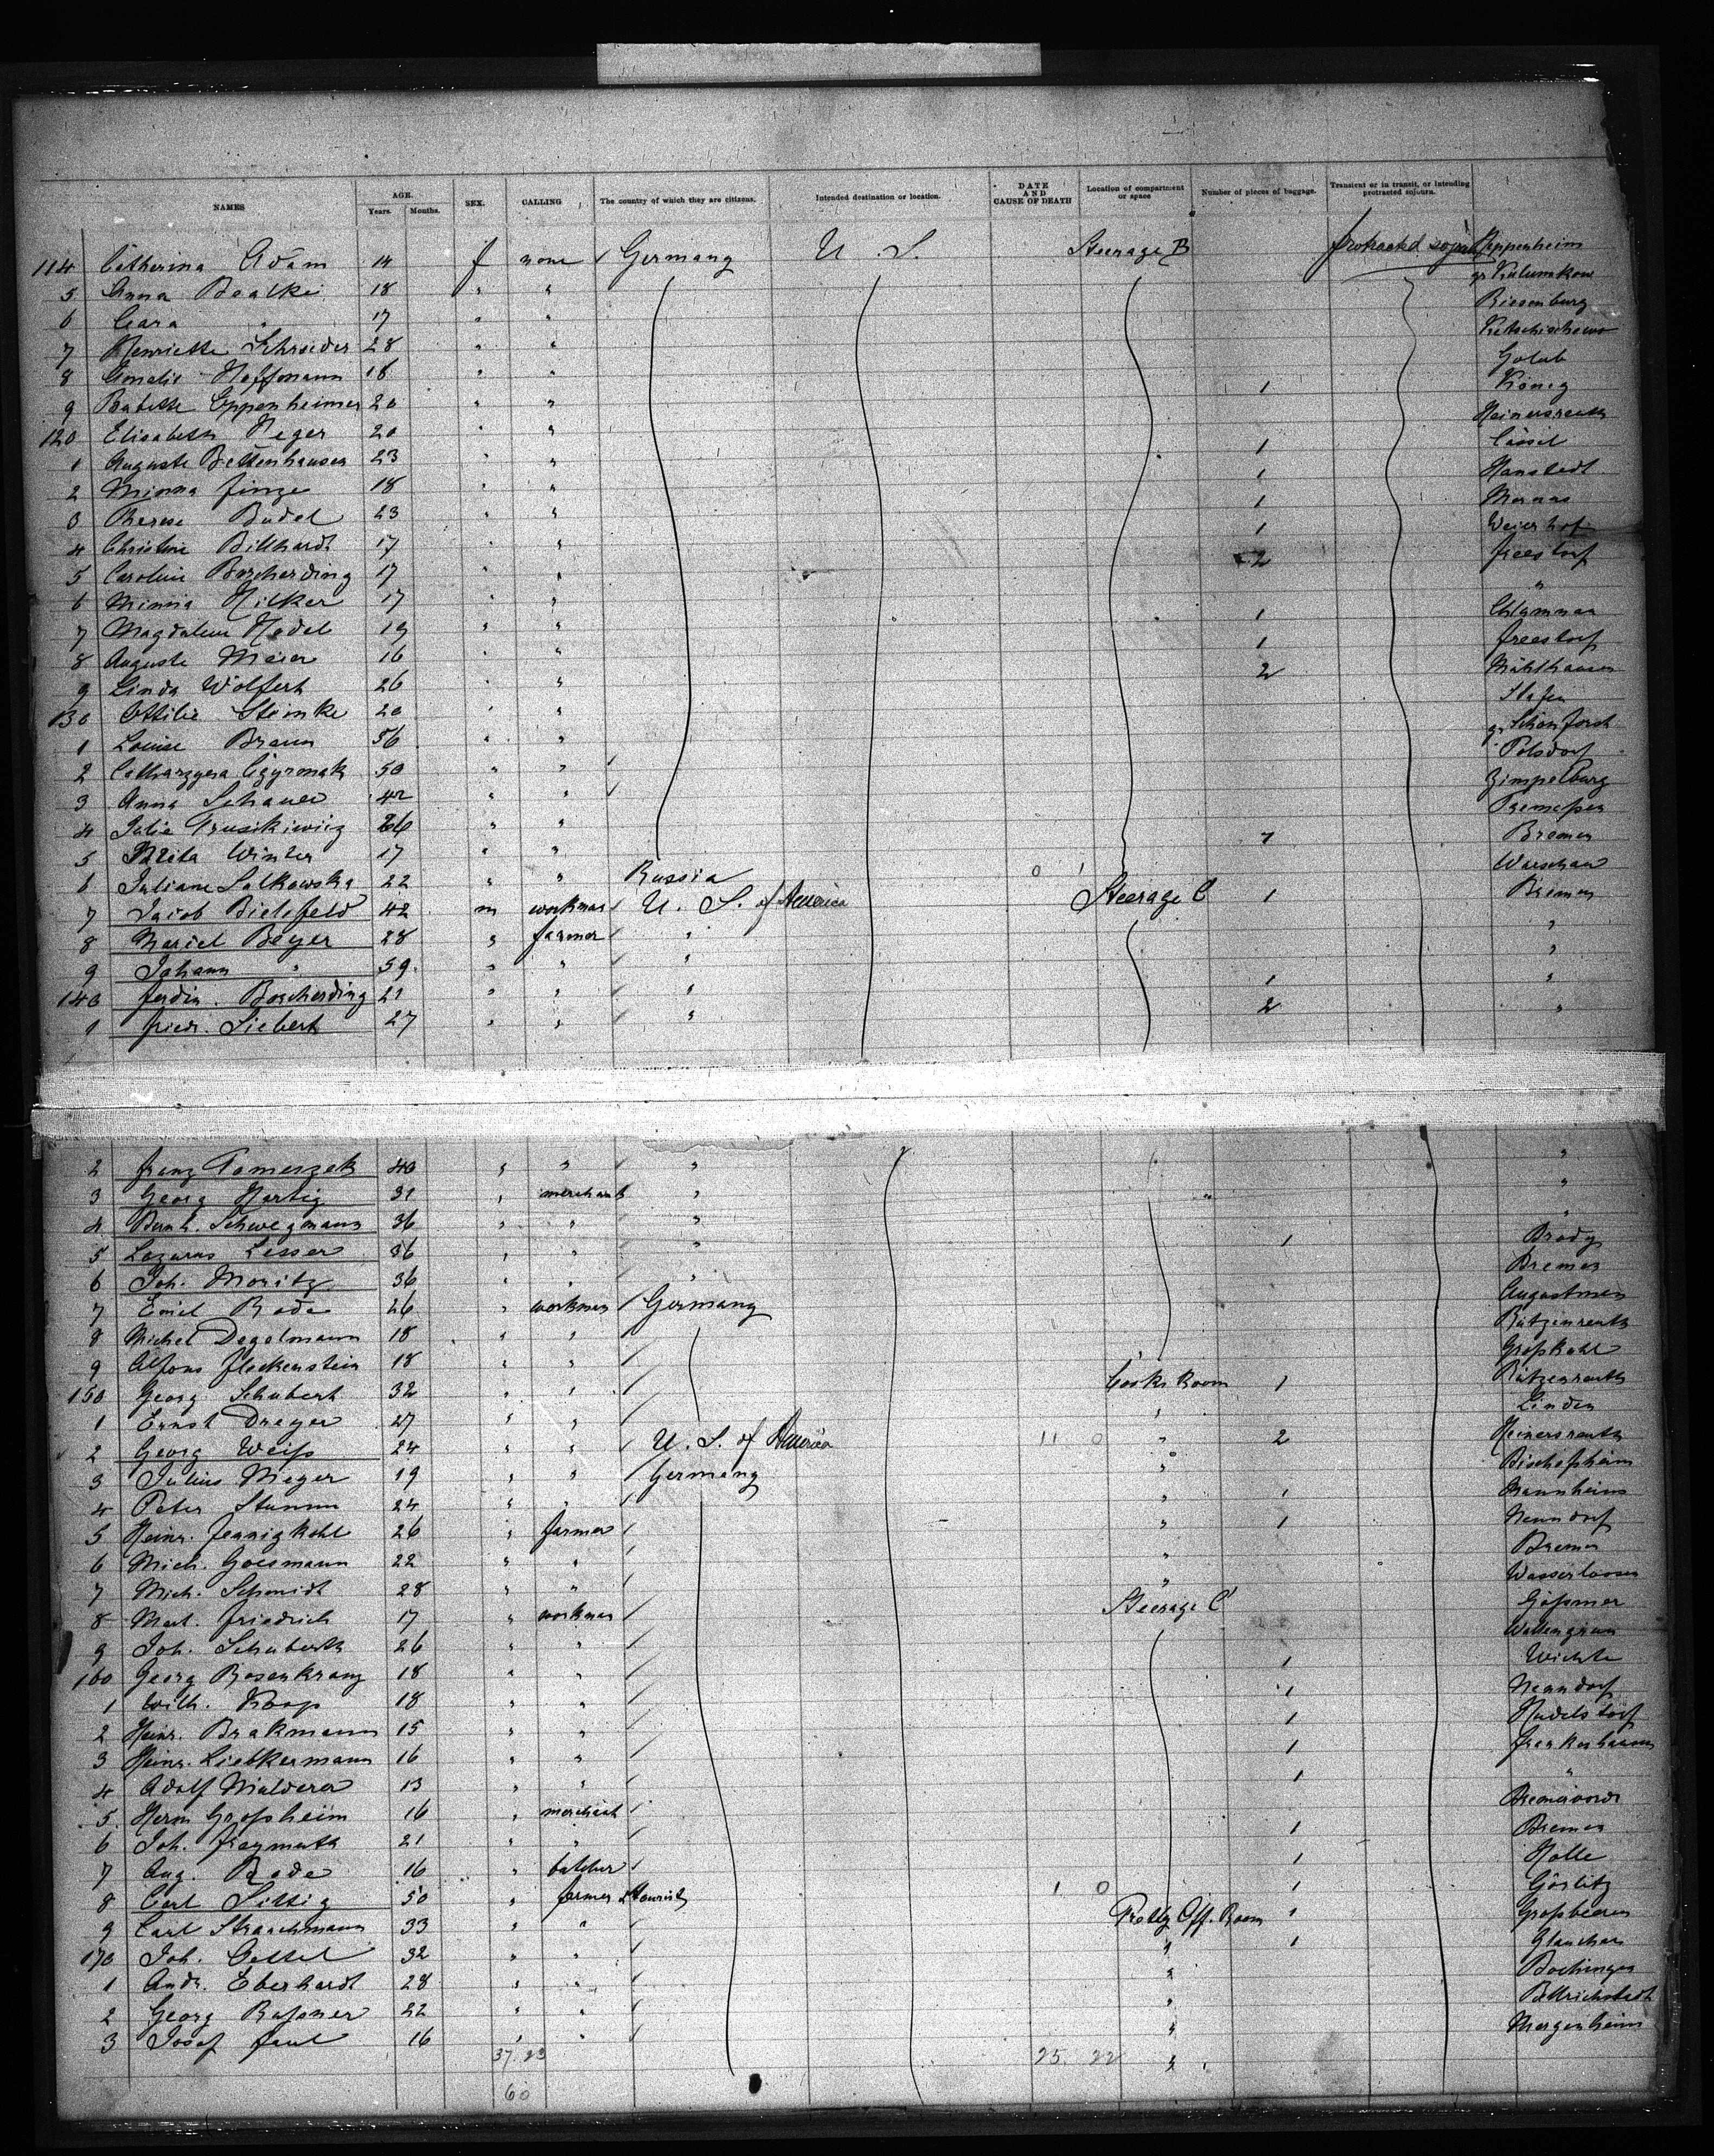 NAMES AGE. Years. Months. SEX. CALLING The country of which they are citizens. Intended destination or location. DATE AND CAUSE OF DEATH Location of compartment or space Number of pieces of baggage. Transient or in transit, or intending protracted sojourn.
114 Catherina Adam 14 f none / Germany U. S. Steerage B protracted sojourn Heppenheim
5 Anna Bealke 18 " " gr
6 Clara " 17 " " Riesenburg
7 Henriette Schroeder 28 " "
8 Amalie Hoffmann 18 " " Golub
9 Babette Oppenheimer 20 " " 1 König
120 Elisabeth Heger 20 " " Heinersreuth
1 Auguste Bettenhausen 23 " " 1 Cassel
2 Minna Finze 18 " " 1 Hanstedt
3 Therese Budel 23 " " 1
4 Christine Billhardt 17 " " 1 Weierhof
5 Caroline Borcherding 17 " " 2 Freestorf
6 Minna Hilker 17 " " "
7 Magdalene Hodel 19 " " 1
8 Auguste Meier 16 " " 1 Freestorf
9 Linda Wolfert 26 " " 2 Mühlhausen
130 Ottilie Steinke 20 " "
1 Louise Braun 56 " " gr Schönforst
2 50 " " / Polsdorf
3 Anna Schauer 42 " " / Zimpelburg
4 Julie 26 " " Tremessen
5 Meta Winter 17 " " Bremen
6 Juliane Salkowska 22 " " Russia 0 1 Warschau
7 Jacob Bielefeld 42 m workman / U. S. of America Steerage C 1 Bremen
8 Mariel Beyer 28 " farmer / " "
9 Johann " 59 " " / " "
140 Ferdin. Borcherding 21 " " / " 1 "
1 Friedr. Siebert 27 " " / " 2 "
2 Franz Tomerzek 40 " " / " "
3 Georg Hartig 31 " merchant " " "
4 Bernh. Schwegmann 36 " " " "
5 Lazarus Lesser 36 " " " 1 Brody
6 Joh. Moritz 36 " " " Bremen
7 Emil Rode 26 " workman / Germany
8 Michel Degelmann 18 " " / Rützenreuth
9 Alfons Fleckenstein 18 " " / Grosskahl
150 Georg Schubert 32 " " / Cooks Room 1 Rützenreuth
1 Ernst Dreyer 27 " " / " Linden
2 Georg Weiss 24 " " / U. S. of America 11 0 " 2 Heinersreuth
3 Julius Meyer 19 " " / Germany " Bischofsheim
4 Peter Stumm 24 " " / " 1 Mannheim
5 Heinr. Fennigkohl 26 " farmer / " 1 Nenndorf
6 Mich. Goesmann 22 " " / " Bremen
7 Mich. Schmidt 28 " " / "
8 Mart. Friedrich 17 " workman / Steerage C
9 Joh. Schuberth 26 " " / Wallengrün
160 Georg Rosenkranz 18 " " / 1 Wichte
1 Wilh. Koop 18 " " / 1 Nenndorf
2 Heinr. Brakmann 15 " " / 1
3 Heinr. Liebkermann 16 " " / 1 Frankenhausen
4 Adolf Malderer 13 " " / 1 "
5 Herm Grossheim 16 " merchant / Bremervoerde
6 Joh. Freymuth 21 " " / 1 Bremen
7 Aug. Rode 16 " butcher / 1 Holle
8 Carl Sittig 50 " farmer & tourist 1 0 1 Görlitz
9 Carl Strachmann 33 " " / Petty Off. Room 1 Grossbeeren
170 Joh. Oettel 32 " " / " 1 Glauchau
1 Andr. Eberhardt 28 " " / " Bochingen
2 Georg Rassner 22 " " / "
3 Josef Faul 16 " " / " Mergenheim
37 23 25. 22 "
60